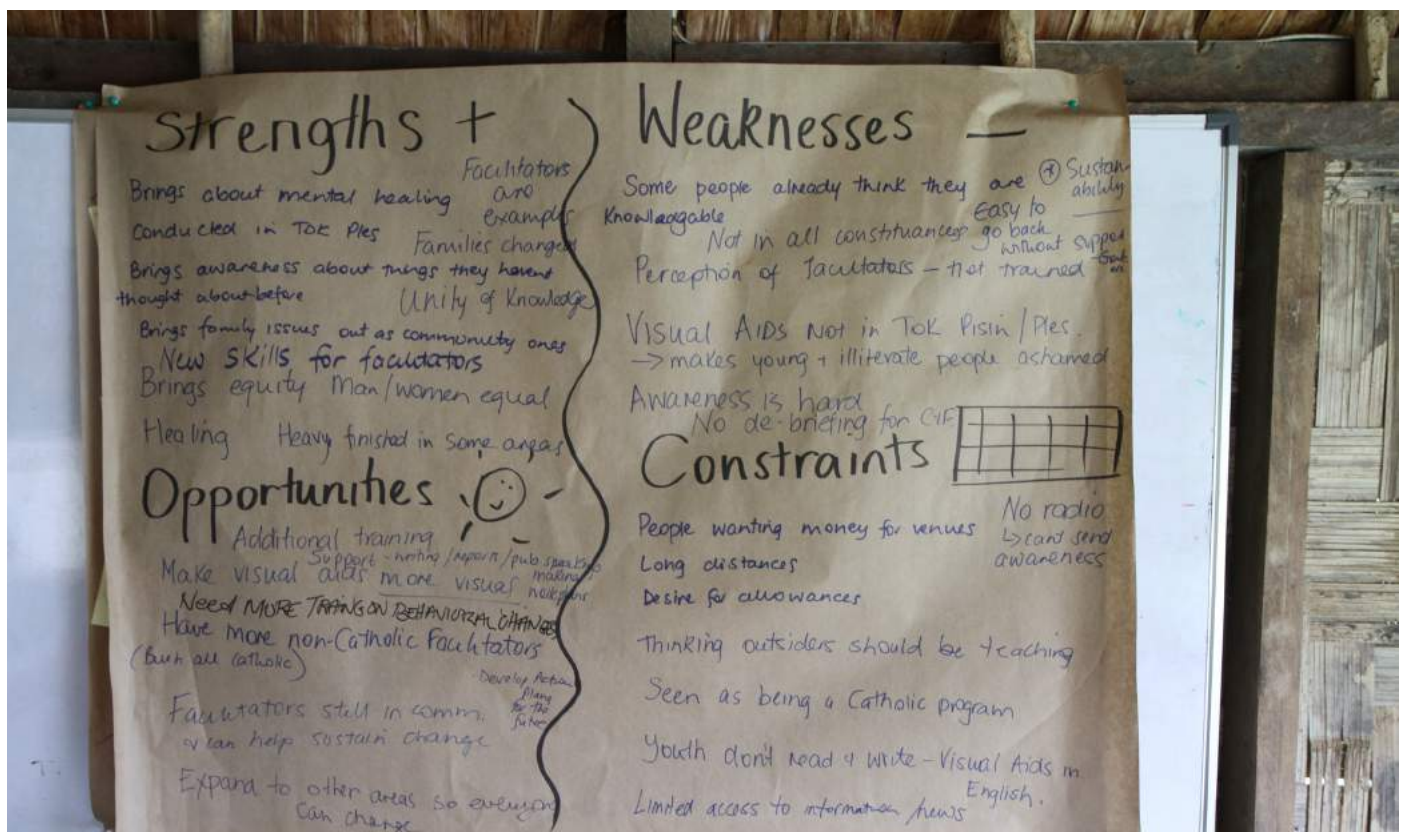 Strengths +
Facilitators
are
examples
Brings about mental healing
conducted in Tok Ples
Families changed
Brings awareness about things they havent
thought about before
Unity of Knowledge
Brings family issues out as community ones
New Skills for facilitators
Brings equity Man/women equal
Healing
Heavy finished in some areas
Opportunities
Additional training
Support - writing/reports/pub speaking
Make visual aids more visual
making
Need MORE TRAING ON BEHAVIORAL CHANGES
Have more non-Catholic Facilitators
all Catholic)
Develop Action
Plans
for the
future
Facilitators still in comm.
can help sustain change
Expand to other areas so everyone
can change
Weaknesses —
Sustain-
ability
Some people already think they are
Knowledgable
Easy to
go back
without support
Not in all constituances
Perception of facilitators - not trained
Visual AIDS Not in Tok Pisin/Ples.
→ makes young + illiterate people ashamed
Awareness is hard
No de-briefing for
Constraints
People wanting money for venues
No radio
↳ cant send
awareness
Long distances
Desire for allowances
Thinking outsiders should be teaching
Seen as being a Catholic program
Youth don't read & write - Visual Aids in
English.
Limited access to information/news